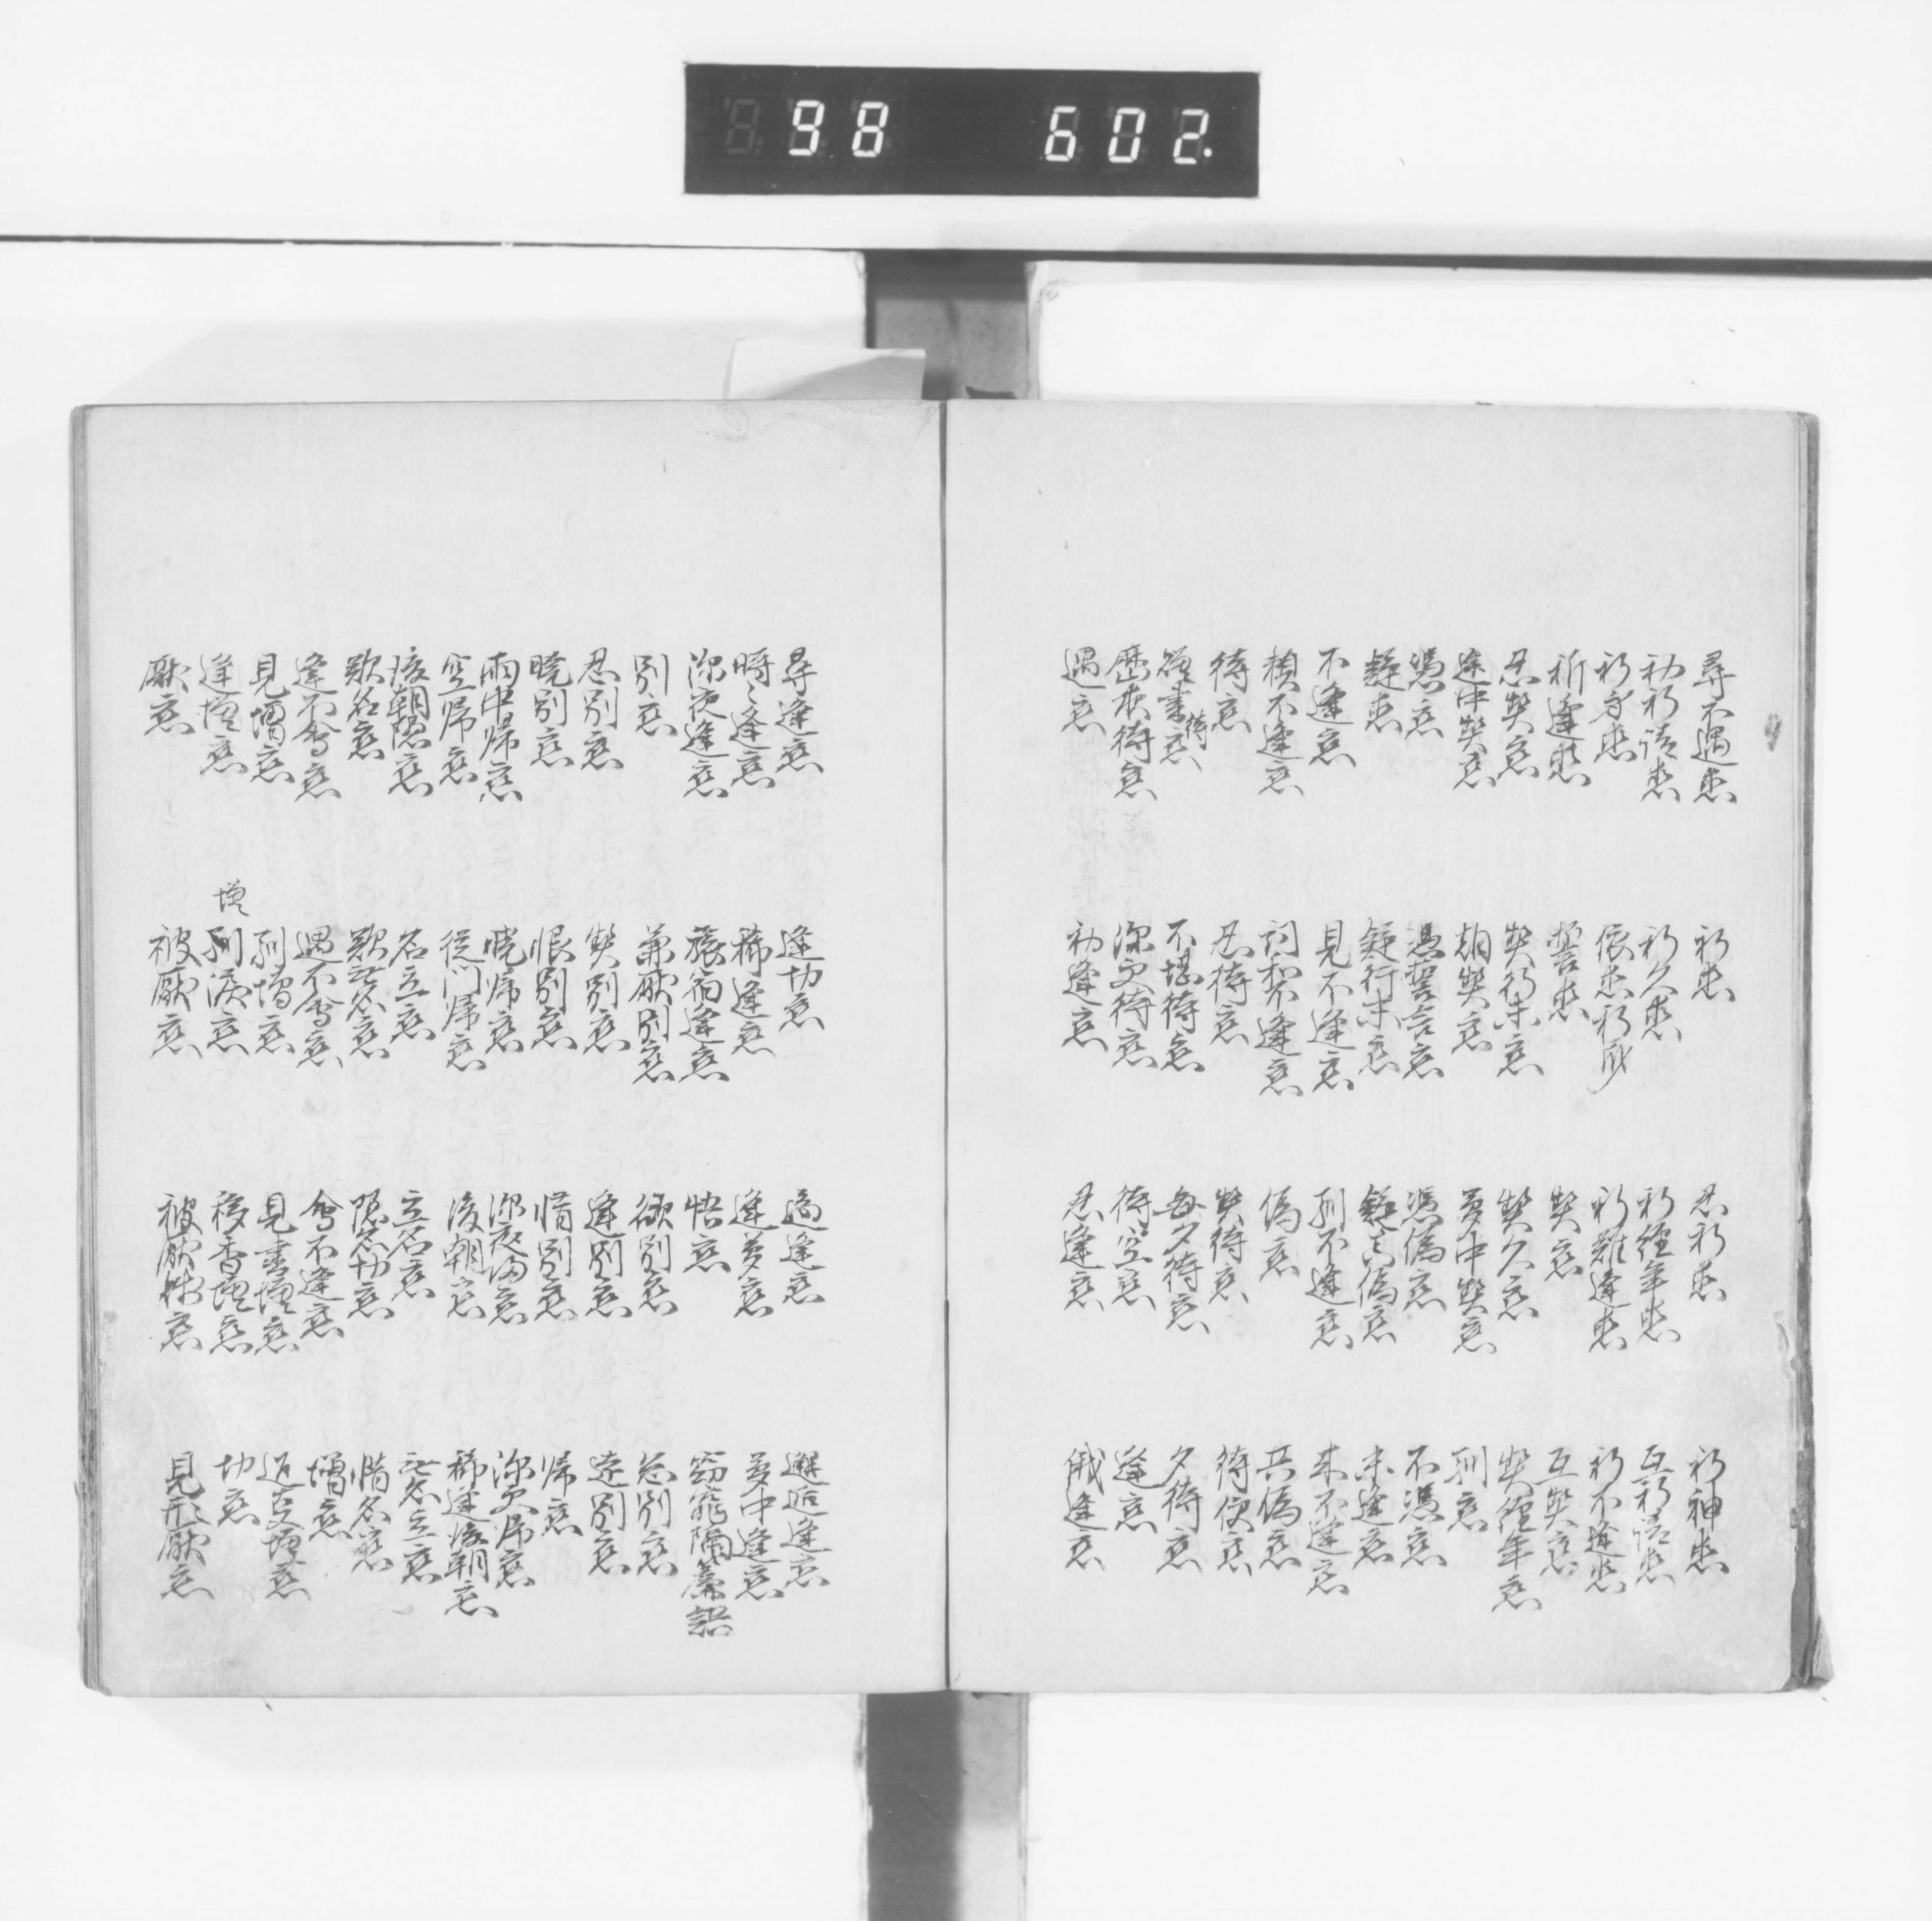 98 602.
尋不遇恋 祈恋 忍祈恋 祈神恋
初祈請恋 祈久恋 祈経年恋 互祈請恋
祈身恋 依恋祈身 祈難逢恋 祈不逢恋
祈逢恋 誓恋 契恋 互契恋
忍契恋 契行末恋 契久恋 契経年恋
途中契恋 朝契恋 夢中契恋 馴恋
憑恋 憑誓言恋 憑偽恋 不憑恋
疑恋 疑行末恋 疑真偽恋 未逢恋
不逢恋 見不逢恋 馴不逢恋 来不逢恋
頻不逢恋 詞和不逢恋 偽恋 共偽恋
待恋 忍待恋 契待恋 待便恋
書待恋 不堪待恋 毎夕待恋 夕待恋
歴夜待恋 深更待恋 待空恋 逢恋
遇恋 初逢恋 忍逢恋 俄逢恋
尋逢恋 逢切恋 適逢恋 邂逅逢恋
時々逢恋 稀逢恋 逢夢恋 夢中逢恋
深夜逢恋 旅宿逢恋 悟恋 窈窕隔簾語
別恋 兼厭別恋 欲別恋 急別恋
忍別恋 契別恋 逢別恋 遠別恋
暁別恋 恨別恋 惜別恋 帰恋
雨中帰恋 暁帰恋 深夜帰恋 深更帰恋
空帰恋 従門帰恋 後朝恋 稀逢後朝恋
後朝隠恋 名立恋 立名恋 無名立恋
歎名恋 歎無名恋 隠名切恋 惜名恋
逢不會恋 遇不會恋 會不逢恋 増恋
見増恋 馴増恋 見書増恋 増恋
逢増恋 増 馴涙恋 移香増恋 切恋
厭恋 被厭恋 被厭賤恋 見形厭恋